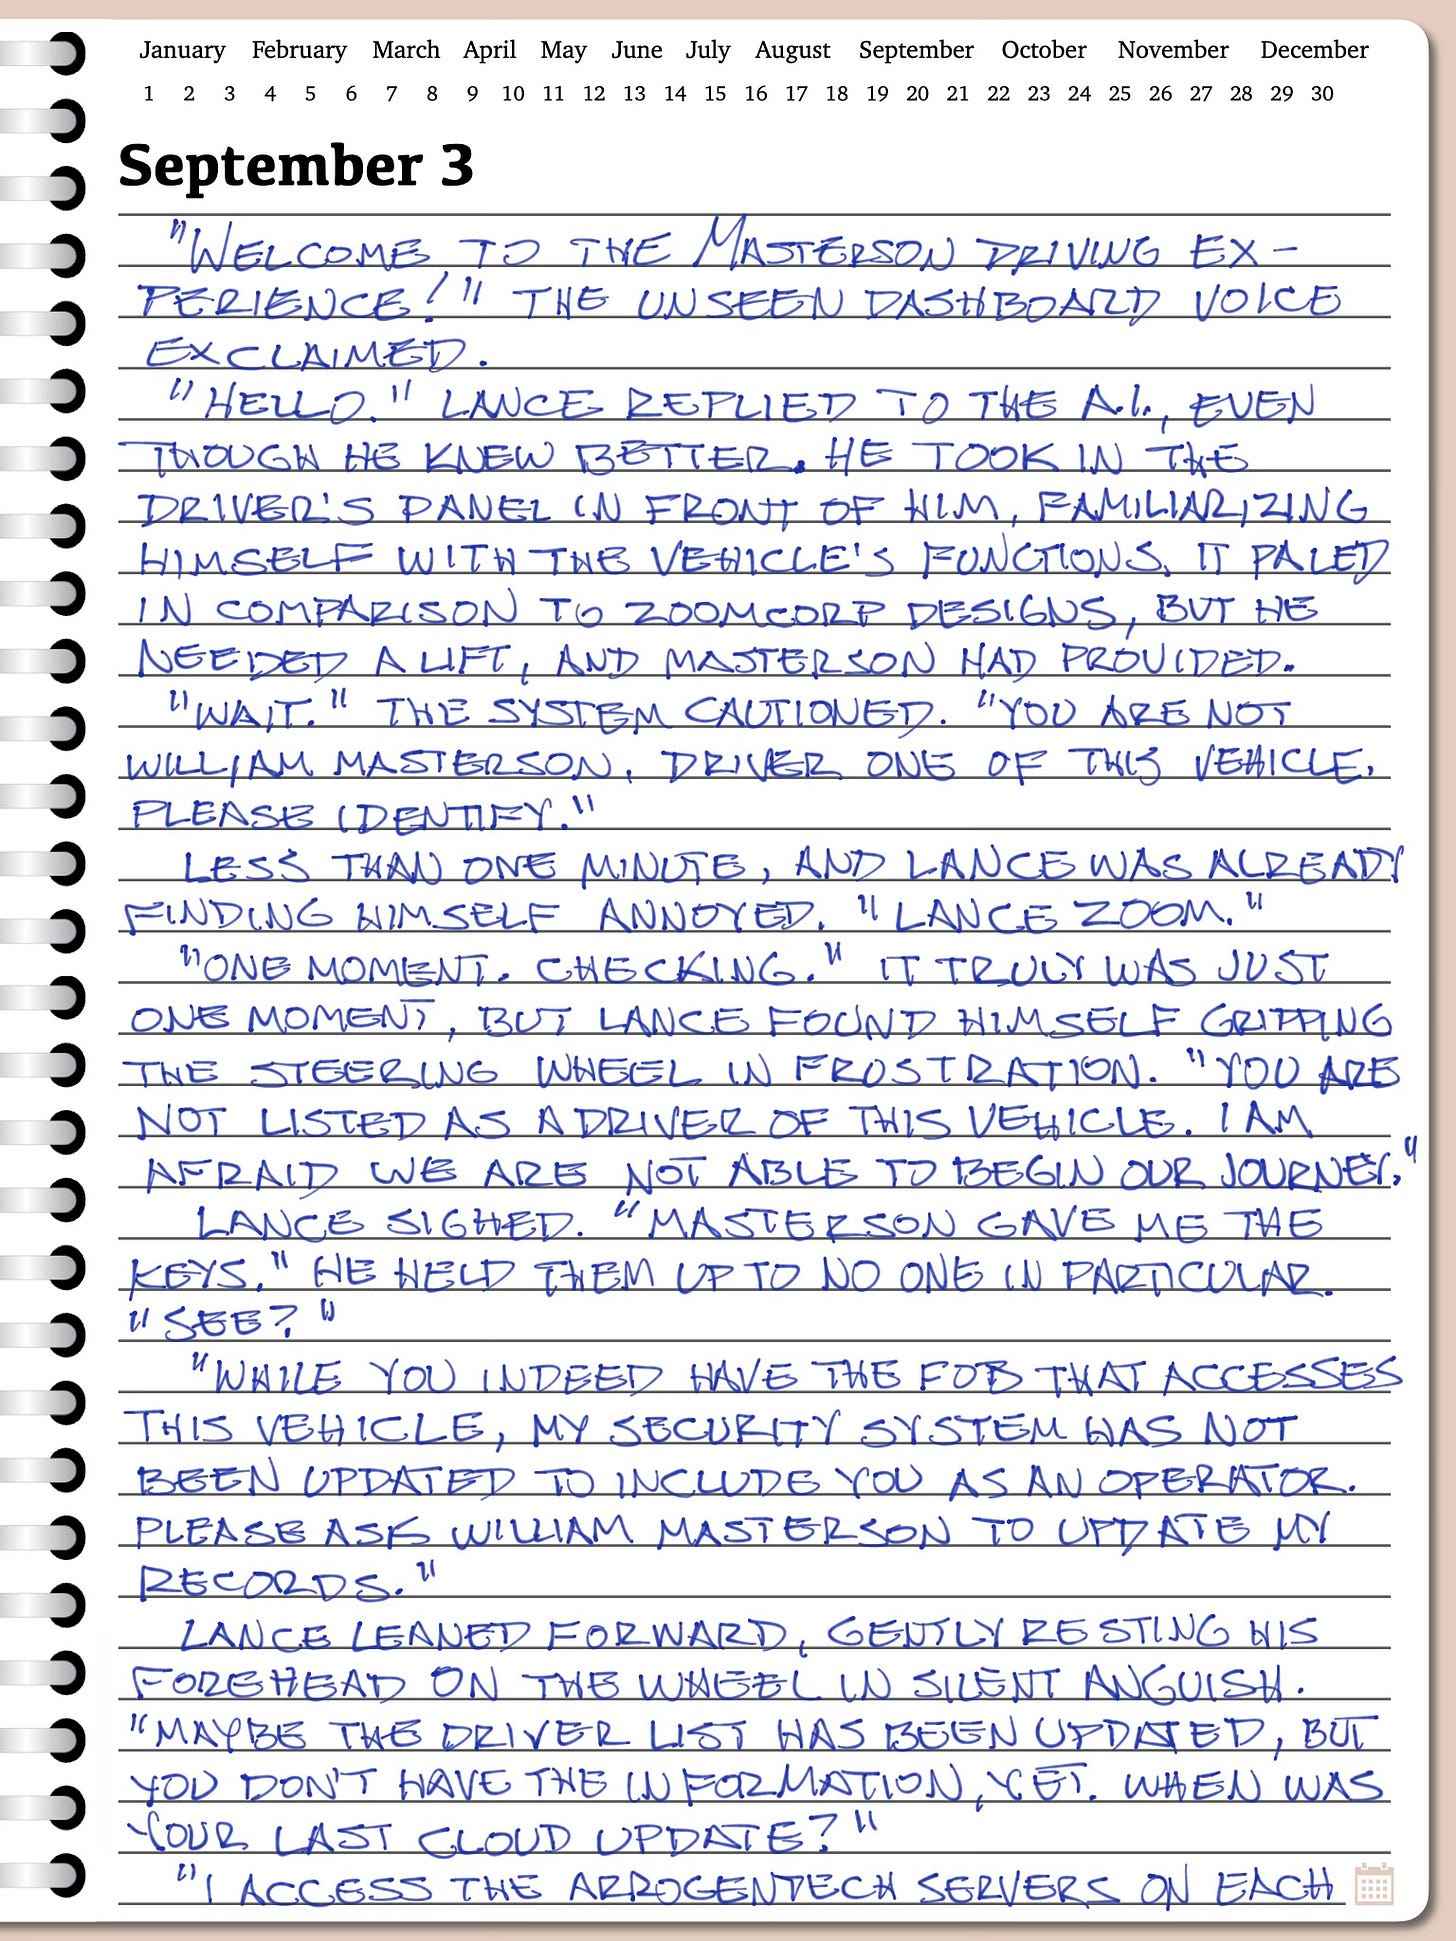 January February March April May June July August September October November December
1 2 3 4 5 6 7 8 9 10 11 12 13 14 15 16 17 18 19 20 21 22 23 24 25 26 27 28 29 30
September 3
"WELCOME TO THE MASTERSON DRIVING EX-
PERIENCE!" THE UNSEEN DASHBOARD VOICE
EXCLAIMED.
"HELLO." LANCE REPLIED TO THE A.I., EVEN
THOUGH HE KNEW BETTER. HE TOOK IN THE
DRIVER'S PANEL IN FRONT OF HIM, FAMILIARIZING
HIMSELF WITH THE VEHICLE'S FUNCTIONS. IT PALED
IN COMPARISON TO ZOOMCORP DESIGNS, BUT HE
NEEDED A LIFT, AND MASTERSON HAD PROVIDED.
"WAIT." THE SYSTEM CAUTIONED. "YOU ARE NOT
WILLIAM MASTERSON, DRIVER ONE OF THIS VEHICLE.
PLEASE IDENTIFY."
LESS THAN ONE MINUTE, AND LANCE WAS ALREADY
FINDING HIMSELF ANNOYED. "LANCE ZOOM."
"ONE MOMENT. CHECKING." IT TRULY WAS JUST
ONE MOMENT, BUT LANCE FOUND HIMSELF GRIPPING
THE STEERING WHEEL IN FROSTRATION. "YOU ARE
NOT LISTED AS A DRIVER OF THIS VEHICLE. I AM
AFRAID WE ARE NOT ABLE TO BEGIN OUR JOURNEY."
LANCE SIGHED. "MASTERSON GAVE ME THE
KEYS." HE HELD THEM UP TO NO ONE IN PARTICULAR.
"SEE?"
"WHILE YOU INDEED HAVE THE FOB THAT ACCESSES
THIS VEHICLE, MY SECURITY SYSTEM HAS NOT
BEEN UPDATED TO INCLUDE YOU AS AN OPERATOR.
PLEASE ASK WILLIAM MASTERSON TO UPDATE MY
RECORDS."
LANCE LEANED FORWARD, GENTLY RESTING HIS
FOREHEAD ON THE WHEEL IN SILENT ANGUISH.
"MAYBE THE DRIVER LIST HAS BEEN UPDATED, BUT
YOU DON'T HAVE THE INFORMATION, YET. WHEN WAS
YOUR LAST CLOUD UPDATE?"
"I ACCESS THE ARROGENTECH SERVERS ON EACH